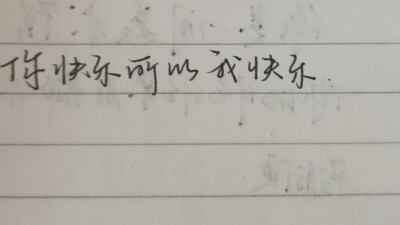 你快乐所以我快乐.